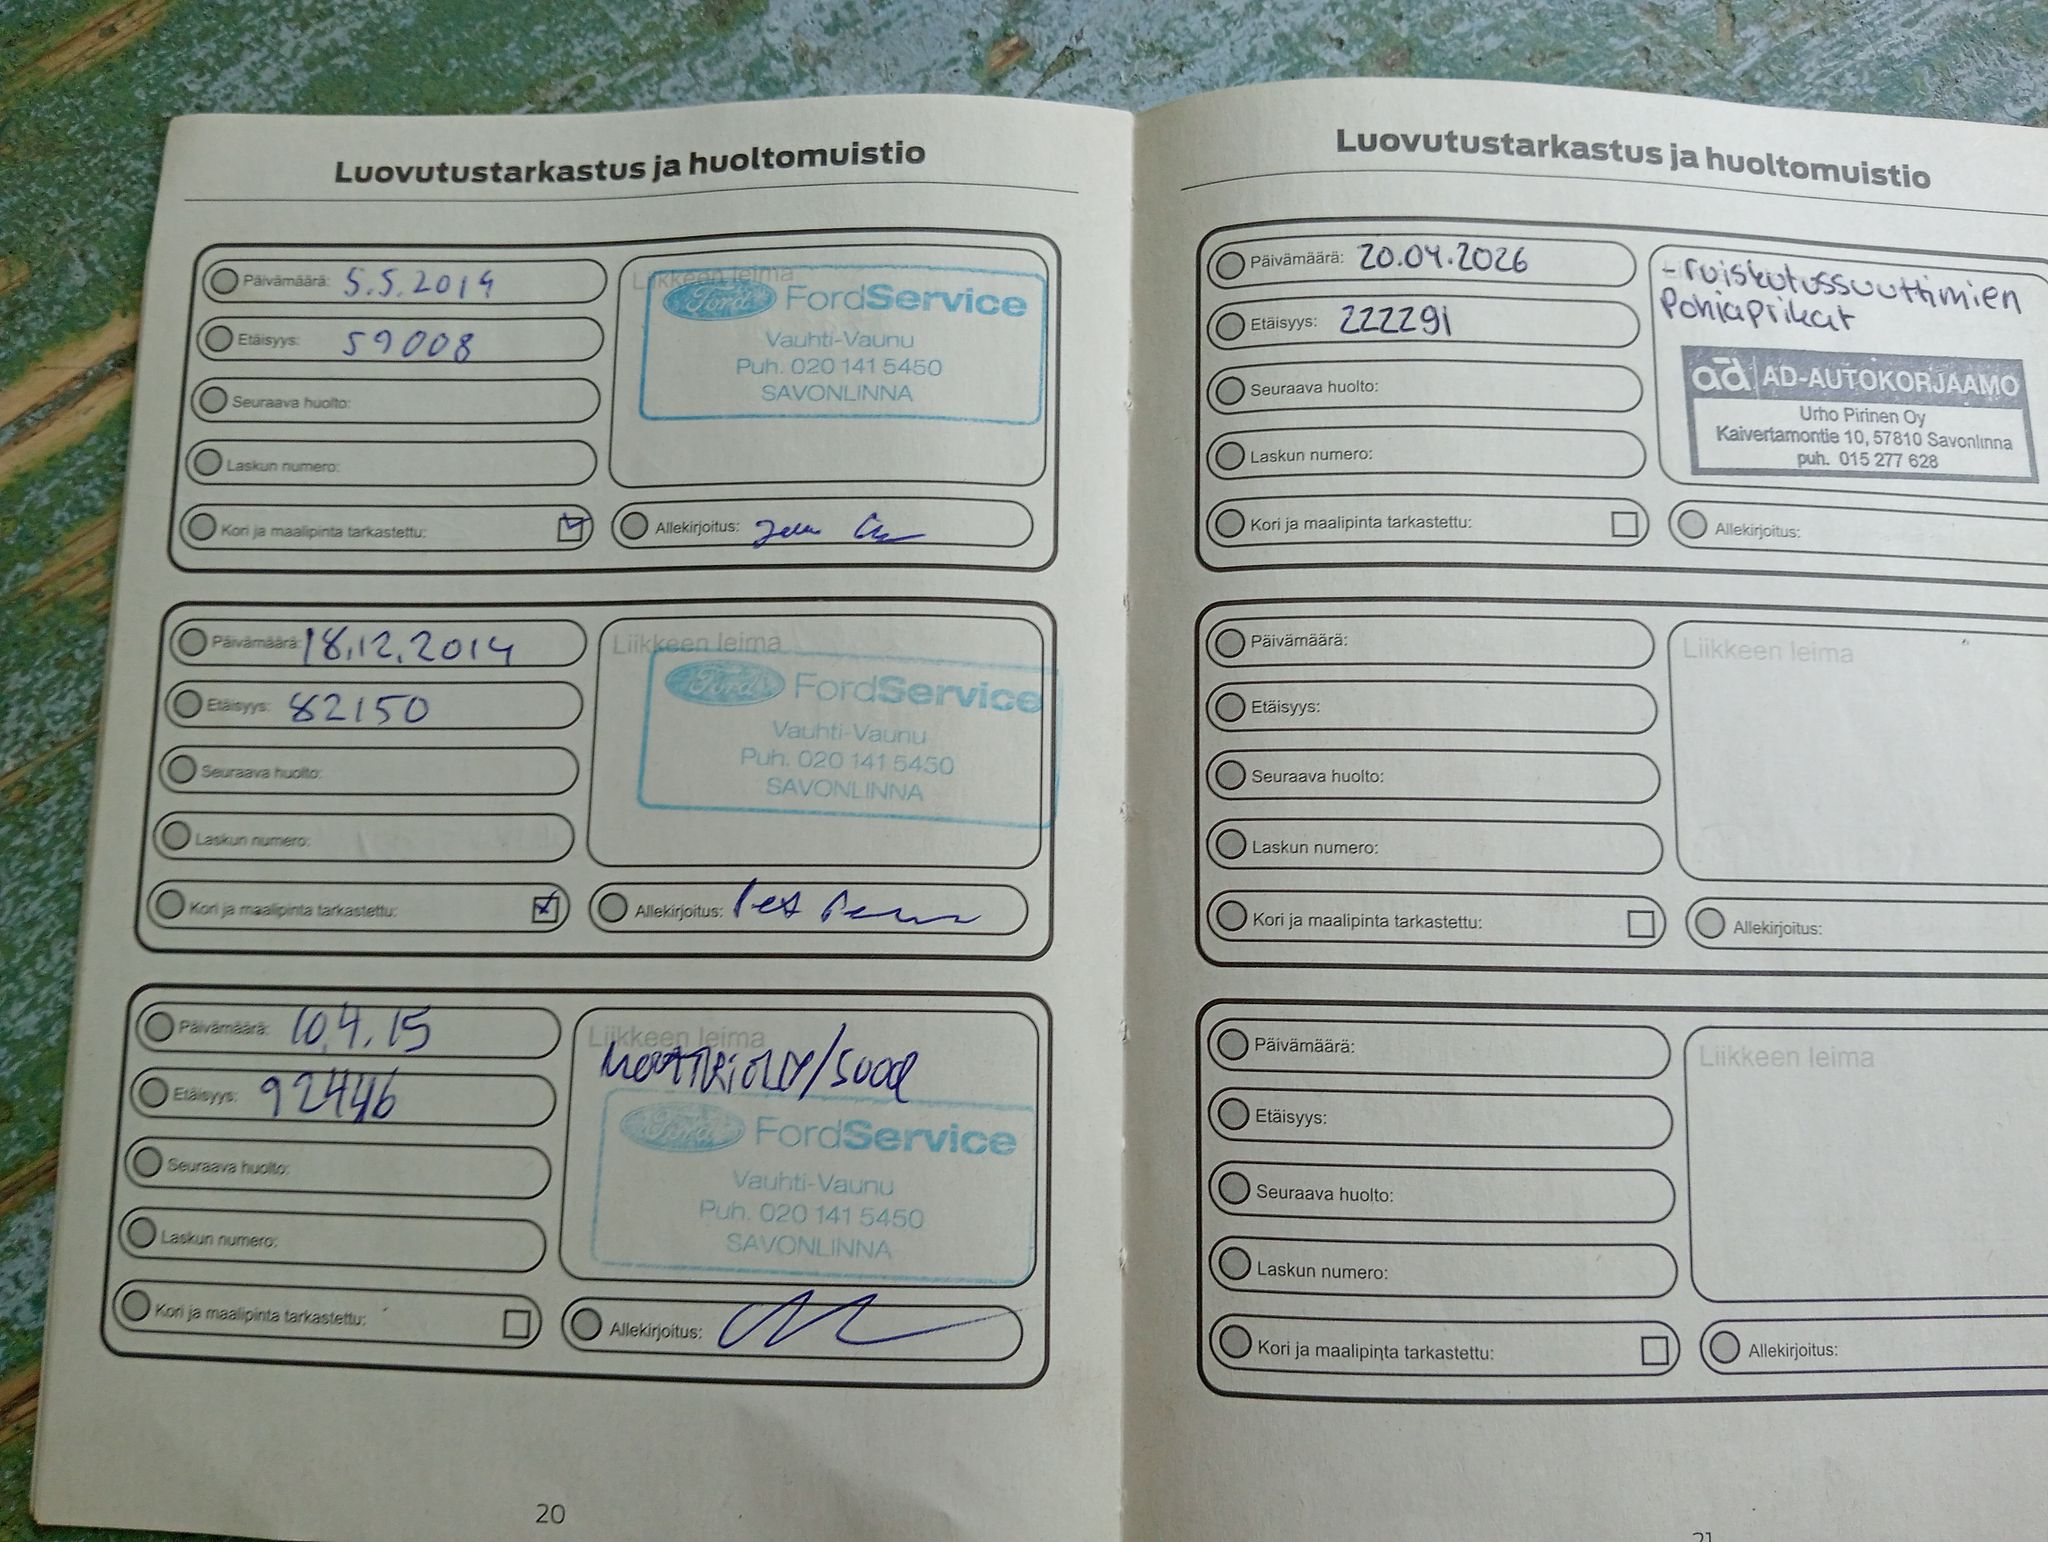 Luovutustarkastus ja huoltomuistio
Päivämäärä: 5.5.2014
Etäisyys: 59008
Seuraava huolto:
Laskun numero:
Kori ja maalipinta tarkastettu:
Liikkeen leima
Ford FordService
Vauhti-Vaunu
Puh. 020 141 5450
SAVONLINNA
Allekirjoitus:
Päivämäärä: 18.12.2014
Etäisyys: 82150
Seuraava huolto:
Laskun numero:
Kori ja maalipinta tarkastettu:
Liikkeen leima
Ford FordService
Vauhti-Vaunu
Puh. 020 141 5450
SAVONLINNA
Allekirjoitus:
Päivämäärä: 10.4.15
Etäisyys: 92446
Seuraava huolto:
Laskun numero:
Kori ja maalipinta tarkastettu:
Liikkeen leima
Ford FordService
Vauhti-Vaunu
Puh. 020 141 5450
SAVONLINNA
Allekirjoitus:
20
Luovutustarkastus ja huoltomuistio
Päivämäärä: 20.04.2026
Etäisyys: 222291
Seuraava huolto:
Laskun numero:
Kori ja maalipinta tarkastettu:
- ruiskutussuuttimien
Pohjaprikat
ad AD-AUTOKORJAAMO
Urho Pirinen Oy
Kaivertamontie 10, 57810 Savonlinna
puh. 015 277 628
Allekirjoitus:
Päivämäärä:
Etäisyys:
Seuraava huolto:
Laskun numero:
Kori ja maalipinta tarkastettu:
Liikkeen leima
Allekirjoitus:
Päivämäärä:
Etäisyys:
Seuraava huolto:
Laskun numero:
Kori ja maalipinta tarkastettu:
Liikkeen leima
Allekirjoitus:
21